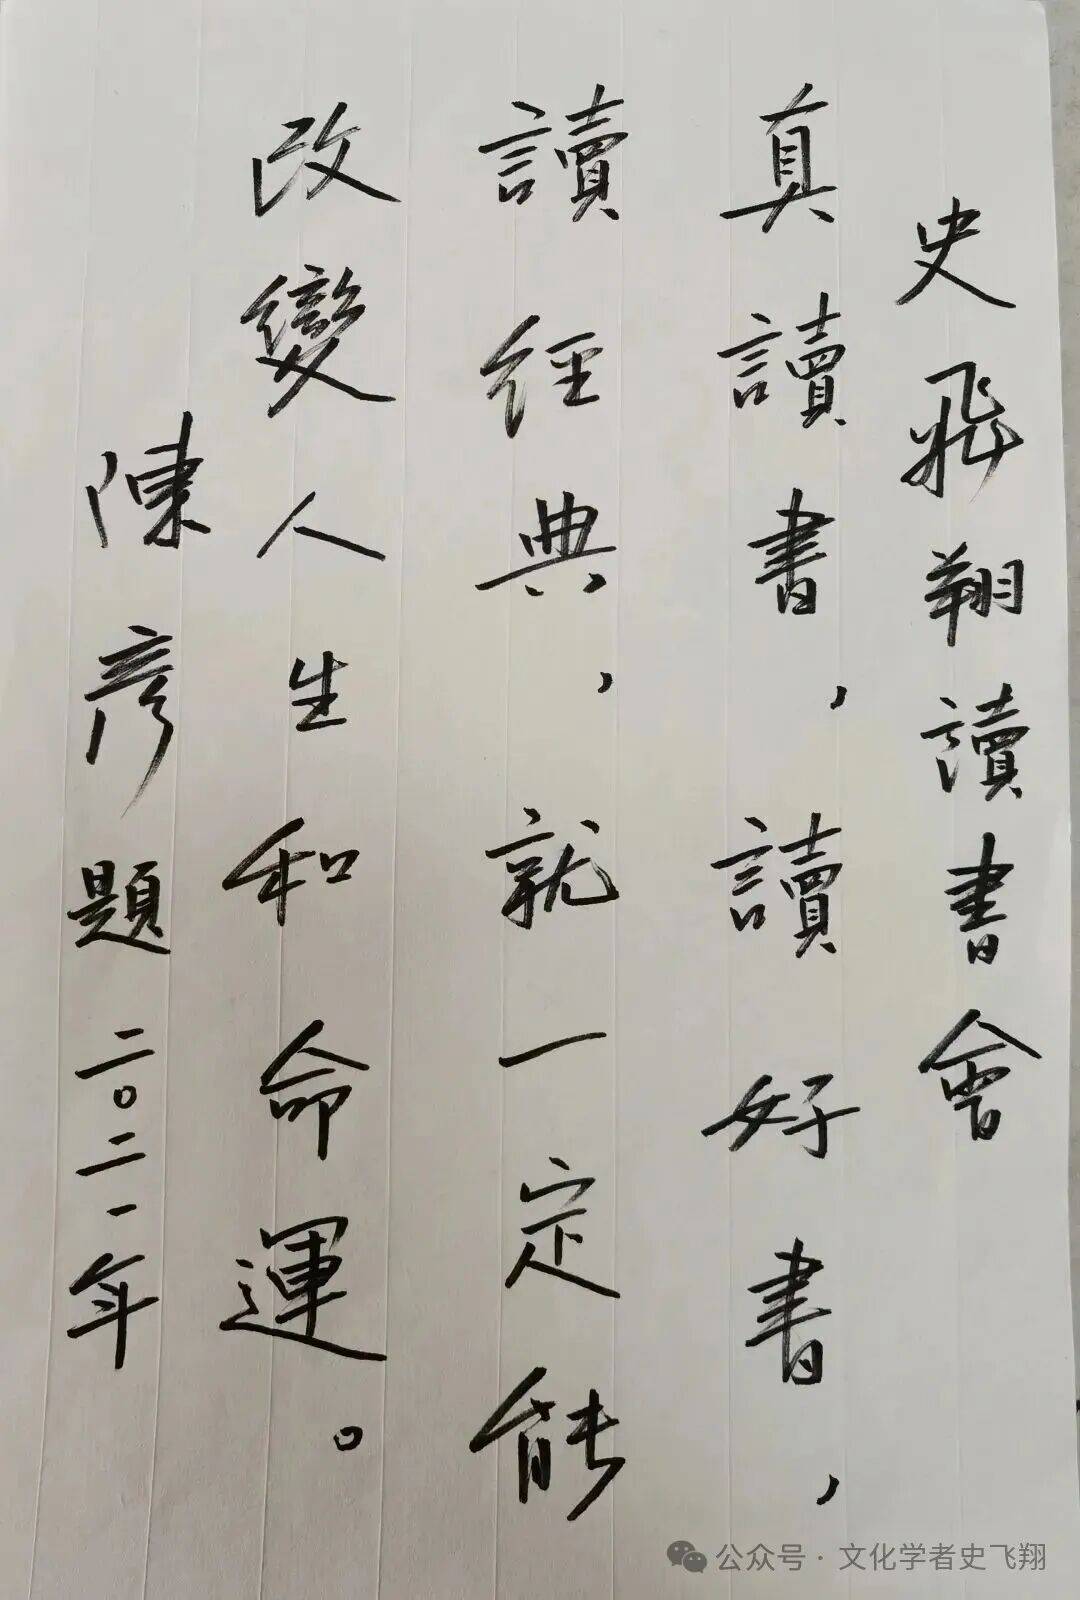 史飛翔讀書會
真讀書，讀好書，
讀經典，就一定能
改變人生和命運。
陳彦題二〇二一年
公众号·文化学者史飞翔